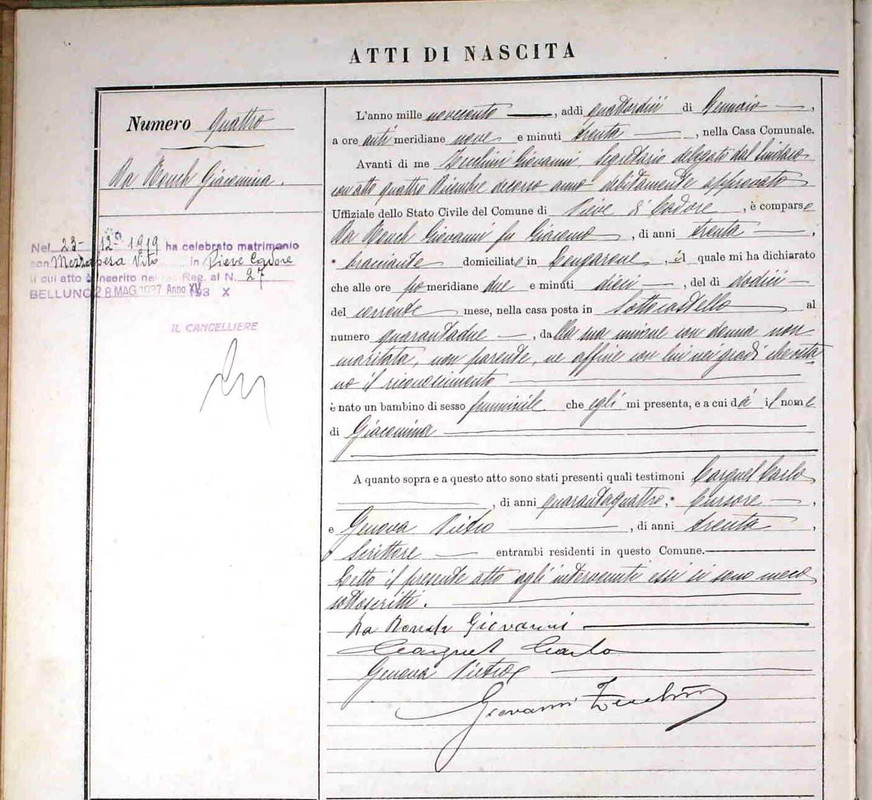 ATTI DI NASCITA
Numero quattro
Da Rench Giacomina.
Nel 23-12-1919 ha celebrato matrimonio
con Mezzapera Vito in Pieve Cadore
il cui atto è inserito nel Reg. al N. 27
BELLUNO 28 MAG 1937 Anno XV 193 X
IL CANCELLIERE
L'anno mille novecento, addì quattordici di Gennaio,
a ore anti meridiane nove e minuti trenta, nella Casa Comunale.
Avanti di me Zecchini Giovanni Segretario delegato dal Sindaco
con atto quattro Dicembre decorso anno debitamente approvato
Uffiziale dello Stato Civile del Comune di Pieve di Cadore, è comparso
Da Rench Giovanni fu Giacomo, di anni trenta,
bracciante domiciliato in Longarone, il quale mi ha dichiarato
che alle ore po meridiane due e minuti dieci, del dì dodici
del corrente mese, nella casa posta in Sottocastello al
numero quarantadue, dalla sua unione con donna non
maritata, non parente, ne affine con lui nei gradi che osta
no il riconoscimento
è nato un bambino di sesso femminile che egli mi presenta, e a cui dà il nome
di Giacomina
A quanto sopra e a questo atto sono stati presenti quali testimoni Coargnel Carlo
, di anni quarantaquattro, Cursore,
e Genova Pietro, di anni trenta,
Scrittore entrambi residenti in questo Comune.
Letto il presente atto agli intervenuti essi si sono meco
sottoscritti.
Da Rench Giovanni
Coargnel Carlo
Genova Pietro
Giovanni Zecchini